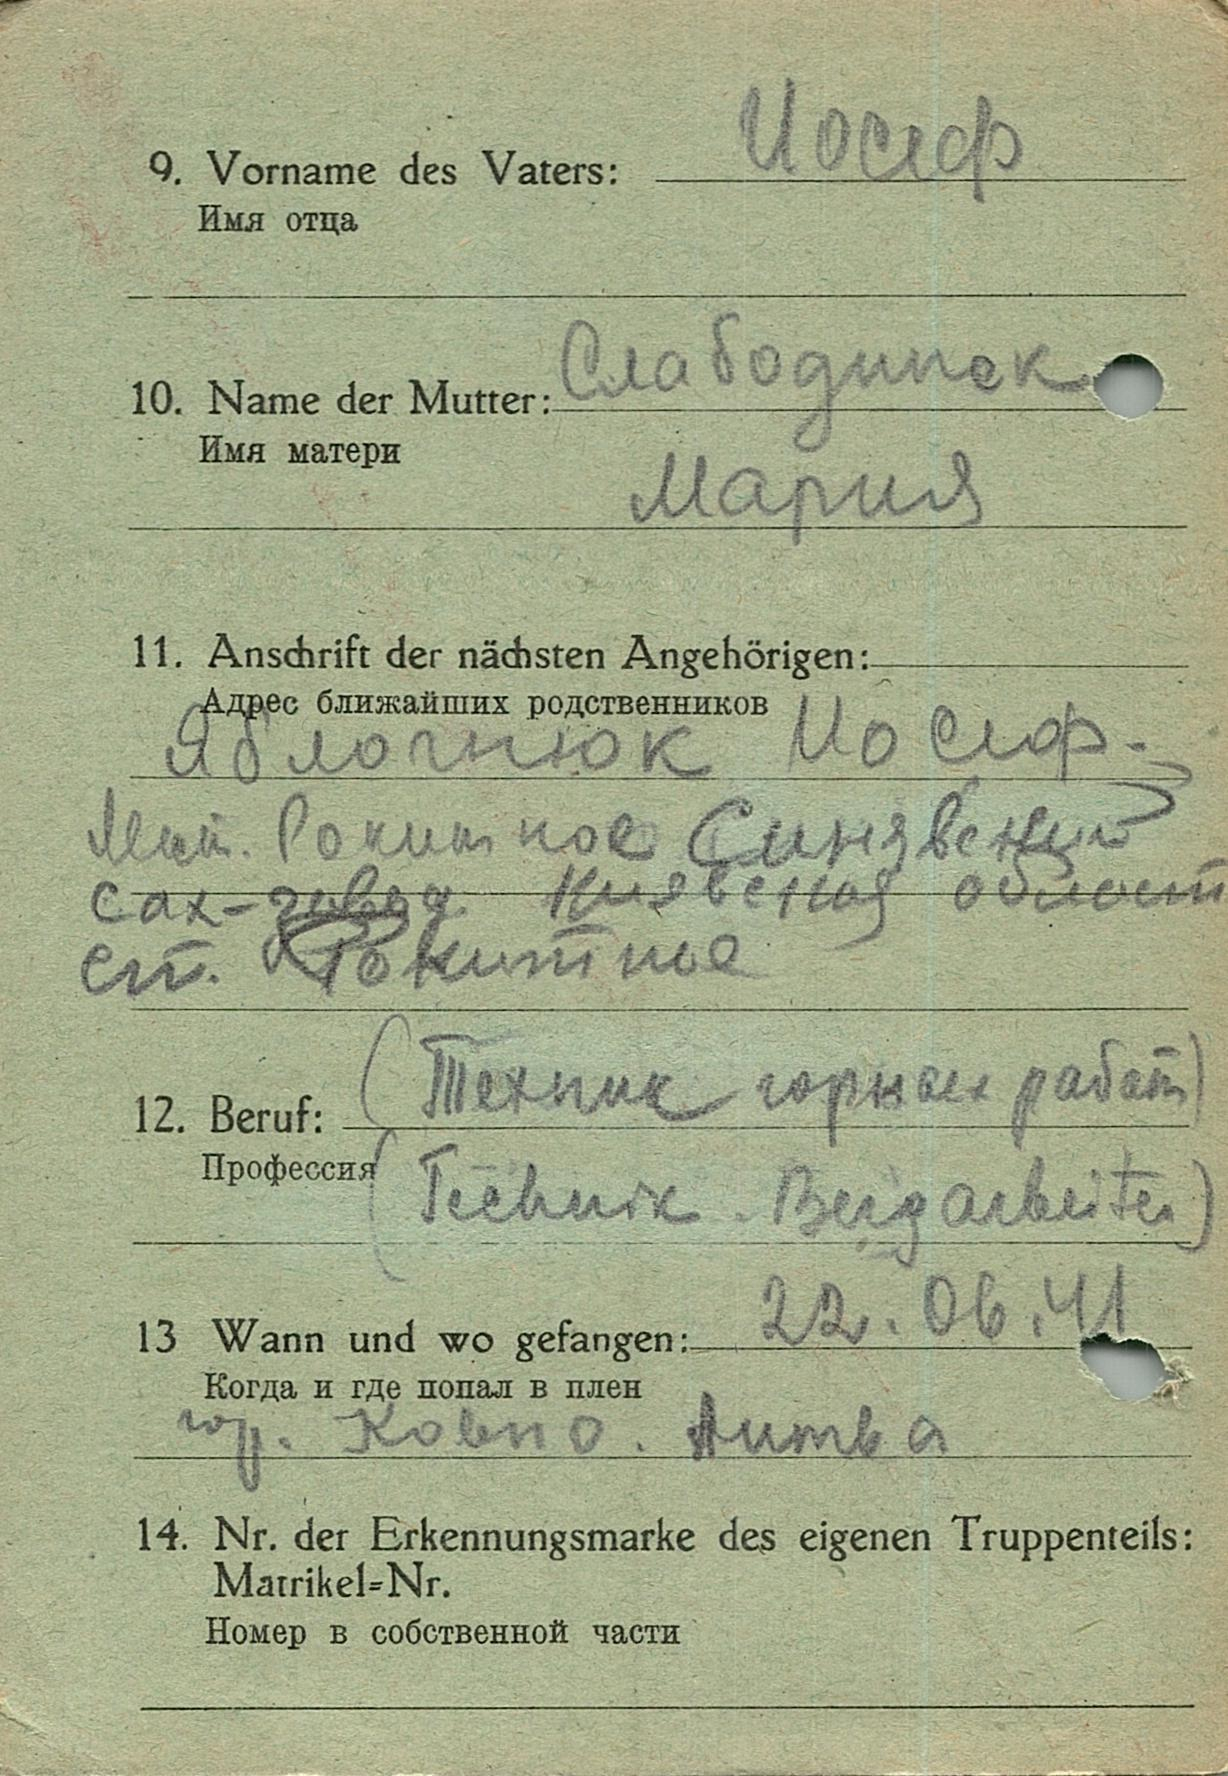 Иосиф
9. Vorname des Vaters:
Имя отца
Слабодинск
10. Name der Mutter:
Имя матери
Мария
11. Anschrift der nächsten Angehörigen:
Адрес ближайших родственников
Яблочнюк Иосиф.
Мст. Рокитное Синявский
сах-завод. Киевская област
ст. Рокитное
(Техник горных работ)
12. Beruf:
Профессия
(Technik. Bergarbeiter)
22.06.41
13 Wann und wo gefangen:
Когда и где попал в плен
гор. Ковно. Литва
14. Nr. der Erkennungsmarke des eigenen Truppenteils:
Matrikel=Nr.
Номер в собственной части